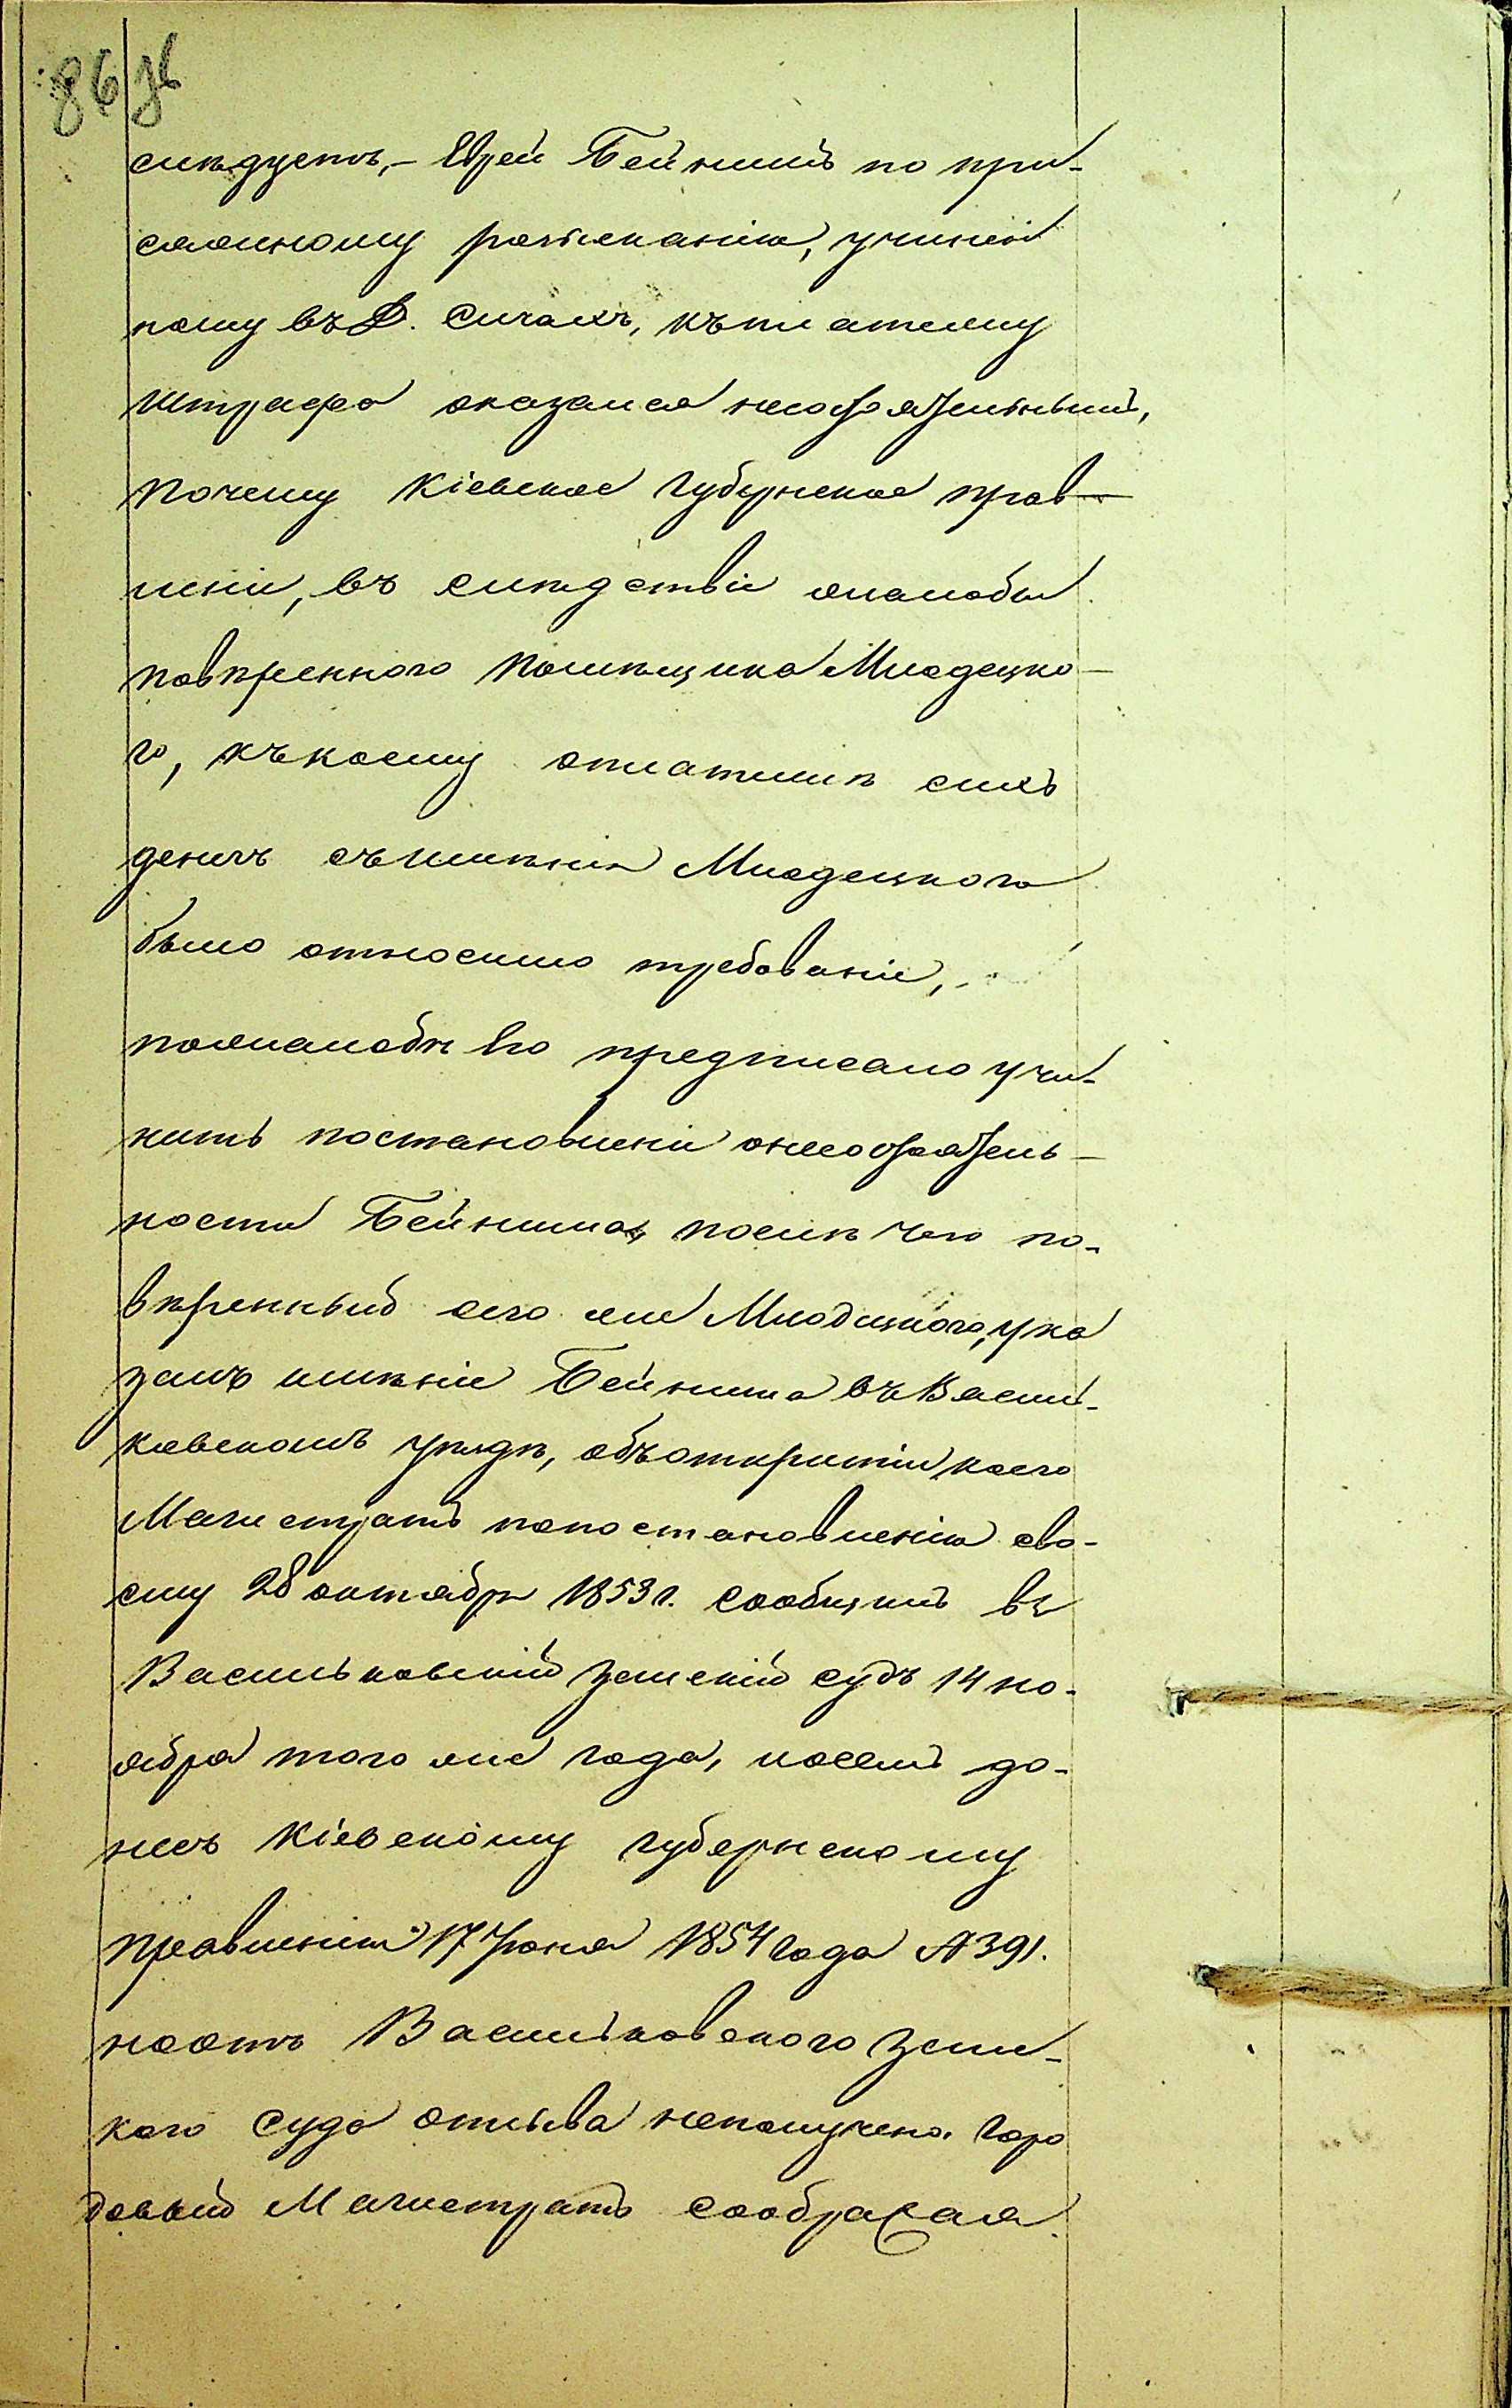 86 зв
слѣдуетъ,- Еврей Бейнишъ по при-
сяжному розысканію, учинен
ному въ Д. Сичахъ, къ платежу
штрафа оказался несостоятельнымъ,
почему Кіевское Губернское прав-
леніе, въ слѣдствіе жалобы
повѣреннаго помѣщика Млодецко-
го, къ коему о платежѣ сихъ
денегъ съ имѣнія Млодецкого
было относимо требованіе,
по жалобѣ его предписало учи-
нить постановленіе о несостоятель-
ности Бейниша, послѣ чего по-
вѣренный его же Млодецкого, ука
залъ имѣніе Бейниша въ Васил-
ковскомъ уѣздѣ, объ открытіи коего
Магистратъ по постановленію сво-
ему 28 октября 1853 г. сообщилъ въ
Васильковскій земскій судъ 14 но-
ября того же года, и о семъ до-
несъ Кіевскому губернскому
правленію 17 Іюня 1854 года № 391.
но отъ Васильковского земс-
кого суда отзыва не получено. Горо
довый Магистратъ соображая